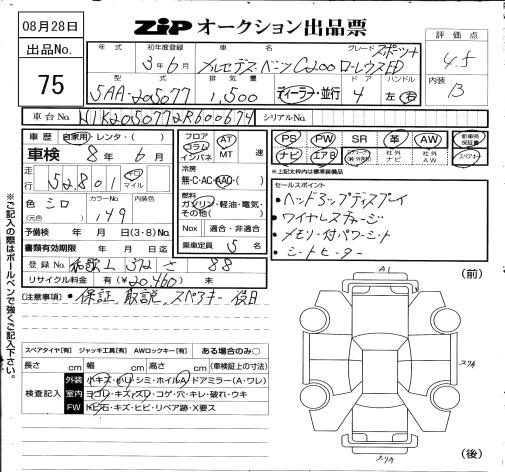 08月28日
ZIP オークション出品票
出品No.
75
年式
初年度登録 3年6月
車名 メルセデスベンツ C200 ローレウスED
グレード スポーツ
評価点 4.5
内装 B
型式 5AA-205077
排気量 1,500
ディーラー・並行
ドア 4
ハンドル 左 右
車台No. W1K2050772R600674
シリアルNo.
車歴 自家用・レンタ・( )
車検 8年6月
走行 52,801 キロ マイル
色 シロ
(元色)
カラーNo. 149
内装色
予備検 年 月 日(3・8) No.
書類有効期限 年 月 日迄
登録No. 和歌山 372 さ 88
リサイクル料金 有(¥20,460) 未
フロア コラム インパネ
AT MT 速
冷房
無・C・AC・AAC・( )
燃料
ガソリン・軽油・電気・その他( )
Nox 適合・非適合
乗車定員 5 名
PS PW SR 革 AW
新車時保証書
ナビ エアB
社外ナビ
社外AW
スペアキー
※上記太枠内は標準装備品
セールスポイント
・ヘッドアップディスプレイ
・ワイヤレスチャージ
・メモリー付パワーシート
・シートヒーター
[注意事項] ・保証、取説、スペアキー 後日
スペアタイヤ[有] ジャッキ工具[有] AWロックキー[有] ある場合のみ○
長さ cm 幅 cm 高さ cm (車検証上の寸法)
検査記入
外装 小キズ・小U・シミ・ホイルA・ドアミラー(A・ワレ)
室内 ヨゴレ・キズ・スレ・コゲ・穴・キレ・破れ・ウキ
FW トビ石・キズ・ヒビ・リペア跡・X要ス
※ご記入の際はボールペンで強くご記入下さい。
(前)
A1
(後)